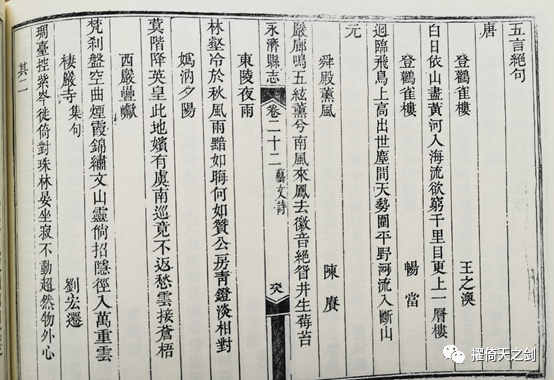 五言絕句
唐
登鸛雀樓　王之渙
白日依山盡黃河入海流欲窮千里目更上一層樓
登鸛雀樓　暢當
迥臨飛鳥上高出世塵間天勢圍平野河流入斷山
元
舜殿薰風　陳賡
巖廊鳴五絃薰兮南風來鳳去徽音絕智井生莓苔
永濟縣志　卷二十二　藝文詩
東陵夜雨
林壑冷於秋風雨黯如晦何如贊公房青鐙淡相對
媯汭夕陽
莫階降英皇此地嬪有虞南巡竟不返愁雲接蒼梧
西巖疊巘
梵刹盤空曲煙霞錦繡文山靈倘招隱徑入萬重雲
棲巖寺　集句　劉宏遷
琱臺控紫岑徙倚對珠林晏坐寂不動超然物外心
其二
擢倚天之剑